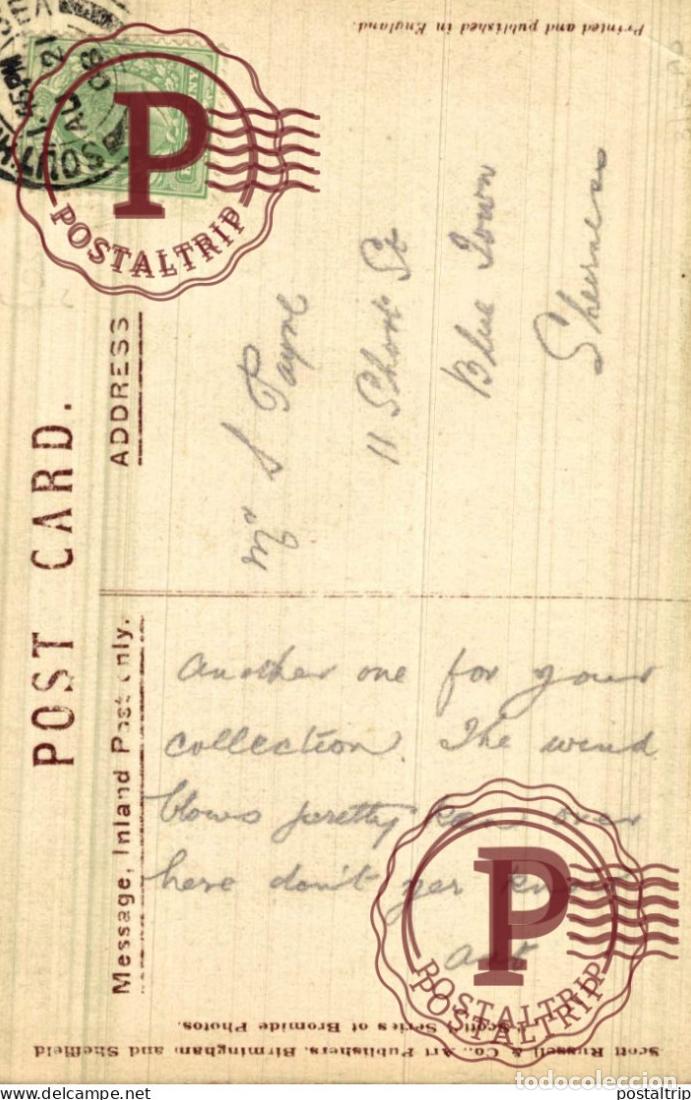 POST CARD.
Printed and published in England.
ADDRESS
Mrs S Payne
11 Short St
Blue Town
Sheerness
Message, Inland Post only.
another one for your
collection. The wind
blows pretty keen over
here don't yer know
Scott Russell & Co., Art Publishers, Birmingham and Sheffield
"Scott" Series of Bromide Photos.
P
POSTALTRIP
P
POSTALTRIP
POSTALTRIP
AU 21
08
todocoleccion.net
https://www.delcampe.net
postaltrip